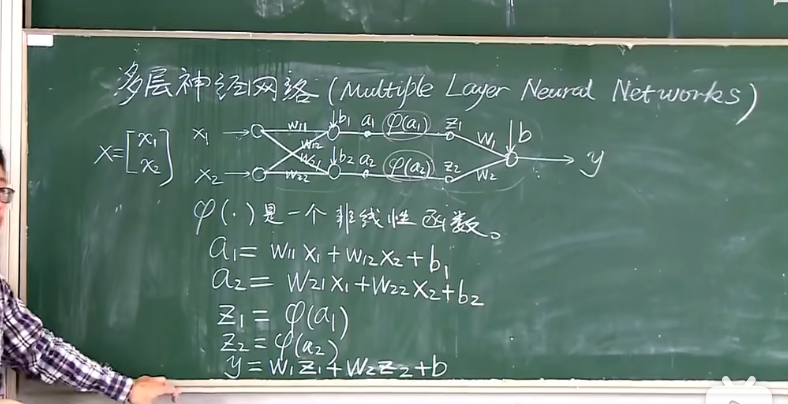 多层神经网络(Multiple Layer Neural Networks)
X=[x₁ x₂]
x₁ w₁₁ b₁ a₁ φ(a₁) z₁ w₁ b
w₁₂
w₂₁
x₂ w₂₂ b₂ a₂ φ(a₂) z₂ w₂ y
φ(·)是一个非线性函数。
a₁= w₁₁x₁+w₁₂x₂+b₁
a₂= w₂₁x₁+w₂₂x₂+b₂
z₁= φ(a₁)
z₂=φ(a₂)
y=w₁z₁+w₂z₂+b